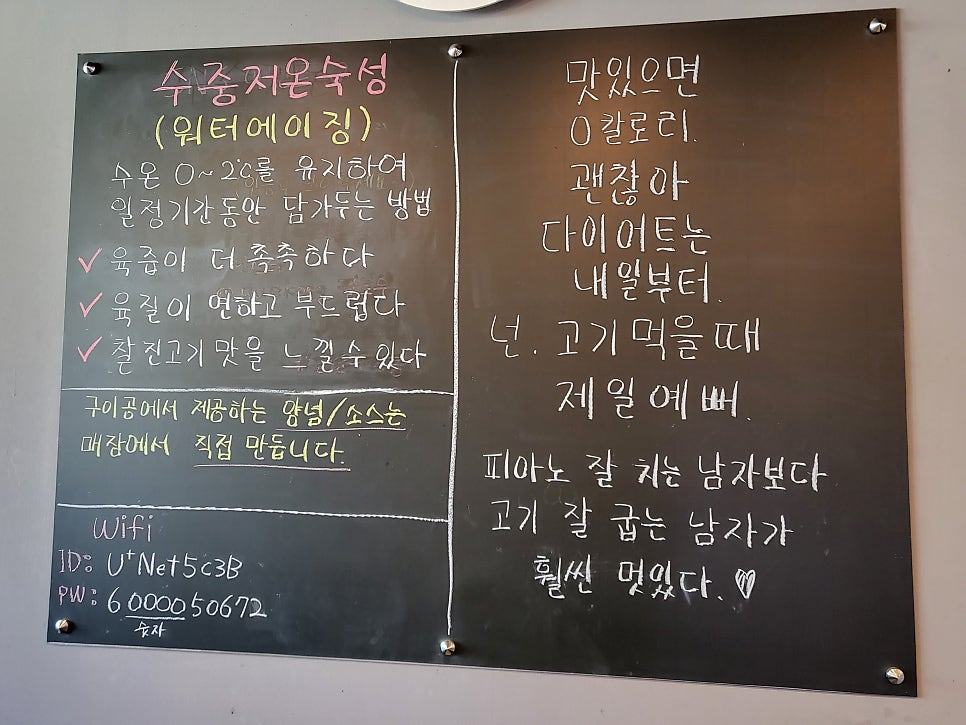 수중저온숙성
(워터에이징)
수온 0~2℃를 유지하여
일정기간동안 담가두는 방법
✓ 육즙이 더 촉촉하다
✓ 육질이 연하고 부드럽다
✓ 찰진고기 맛을 느낄수 있다
구이공에서 제공하는 양념/소스는
매장에서 직접 만듭니다.
Wifi
ID: U+Net5c3B
PW: 6000050672
숫자
맛있으면
0칼로리.
괜찮아
다이어트는
내일부터.
넌. 고기 먹을때
제일예뻐.
피아노 잘 치는 남자보다
고기 잘 굽는 남자가
훨씬 멋있다. ♡